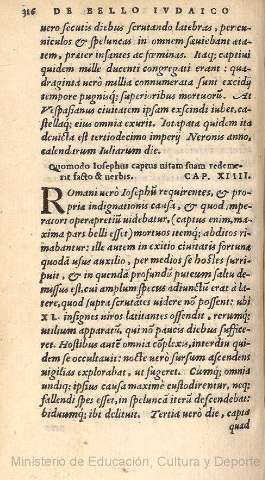 316 DE BELLO IVDAICO
uero secutis diebus scrutando latebras, per cu-
niculos & speluncas in omnem sæuiebant æta-
tem, præter infantes ac fœminas. Itaq; captiui
quidem mille ducenti congregati erant: qua-
draginta uerò millia connumerata sunt excidij
tempore pugnisq; superioribus mortuorũ. At
Vespasianus ciuitatem ipsam exscindi iubet, ca-
stellaq; eius omnia exurit. Iotapata quidem ita
deuicta est tertiodecimo imperij Neronis anno,
calendarum Iuliarum die.
Quomodo Iosephus captus uitam suam redeme-
rit facto & uerbis. CAP. XIIII.
ROmani uerò Iosephũ requirentes, & pro-
pria indignationis causa, & quod impe-
ratori operæpretiũ uidebatur, (captus enim, ma-
xima pars belli esset) mortuos itemq; abditos ri-
mabantur: ille autem in exitio ciuitatis fortunæ
quodã usus auxilio, per medios se hostes surri-
puit, & in quendã profundũ puteum saltu de-
missus est, cui amplum specus adiunctũ erat à la-
tere, quod supra scrutãtes uidere nõ possent: ubi
XL. insignes uiros latitantes offendit, rerumq;
utilium apparatũ, qui nõ paucis diebus suffice-
ret. Hostibus autẽ omnia cõplexis, interdiu qui-
dem se occultauit: nocte uerò sursum ascendens
uigilias explorabat, ut fugeret. Cumq; omnia
undiq; ipsius causa maximè custodirentur, neq;
fallendi spes esset, in speluncã iterũ descendebat:
biduumq; ibi delituit. Tertia uerò die, capta
quad
Ministerio de Educación, Cultura y Deporte